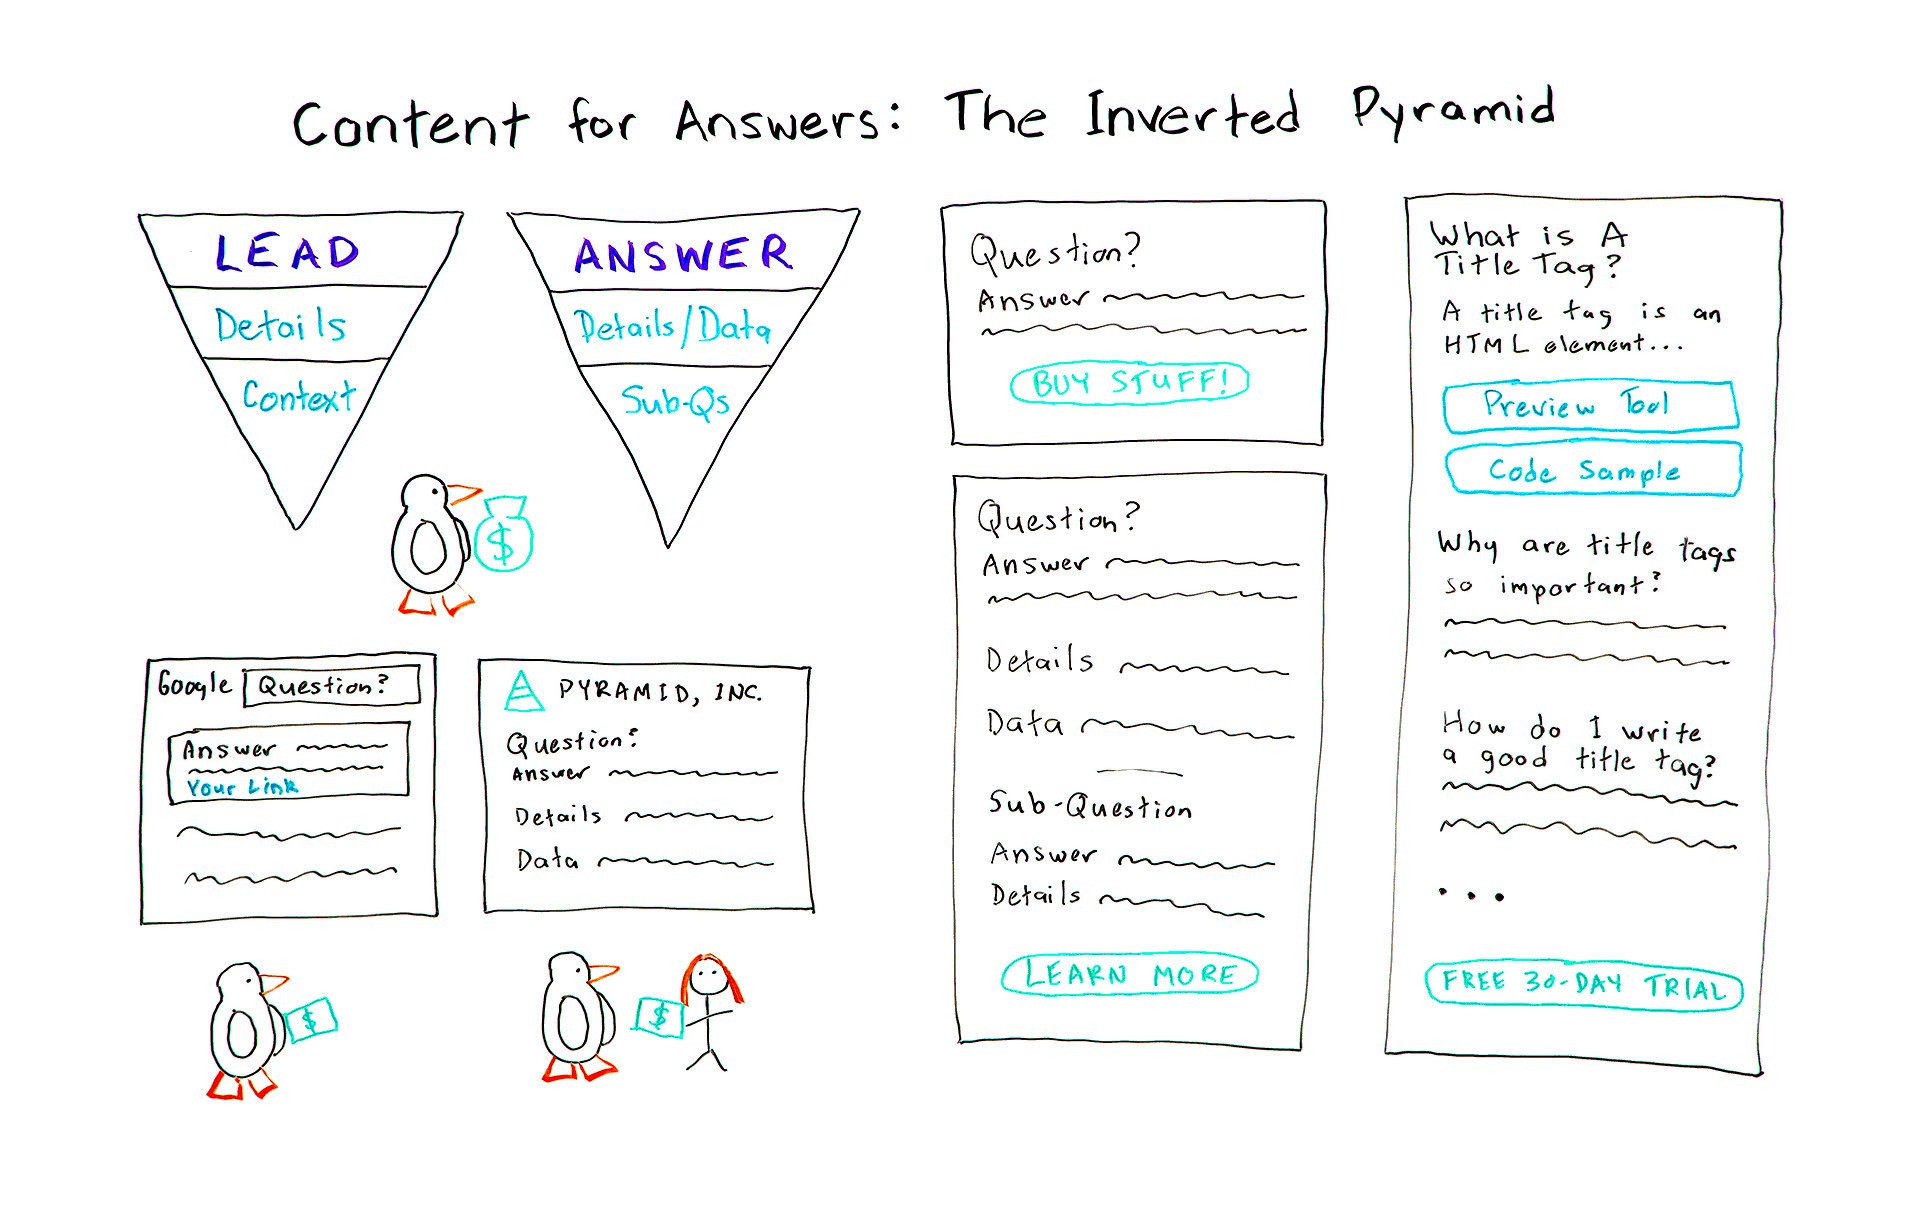 Content for Answers: The Inverted Pyramid
LEAD
Details
Context
ANSWER
Details/Data
Sub-Qs
$
Google
Question?
Answer
Your Link
$
PYRAMID, INC.
Question?
Answer
Details
Data
$
Question?
Answer
BUY STUFF!
Question?
Answer
Details
Data
Sub-Question
Answer
Details
LEARN MORE
What is A
Title Tag?
A title tag is an
HTML element...
Preview Tool
Code Sample
Why are title tags
so important?
How do I write
a good title tag?
...
FREE 30-DAY TRIAL